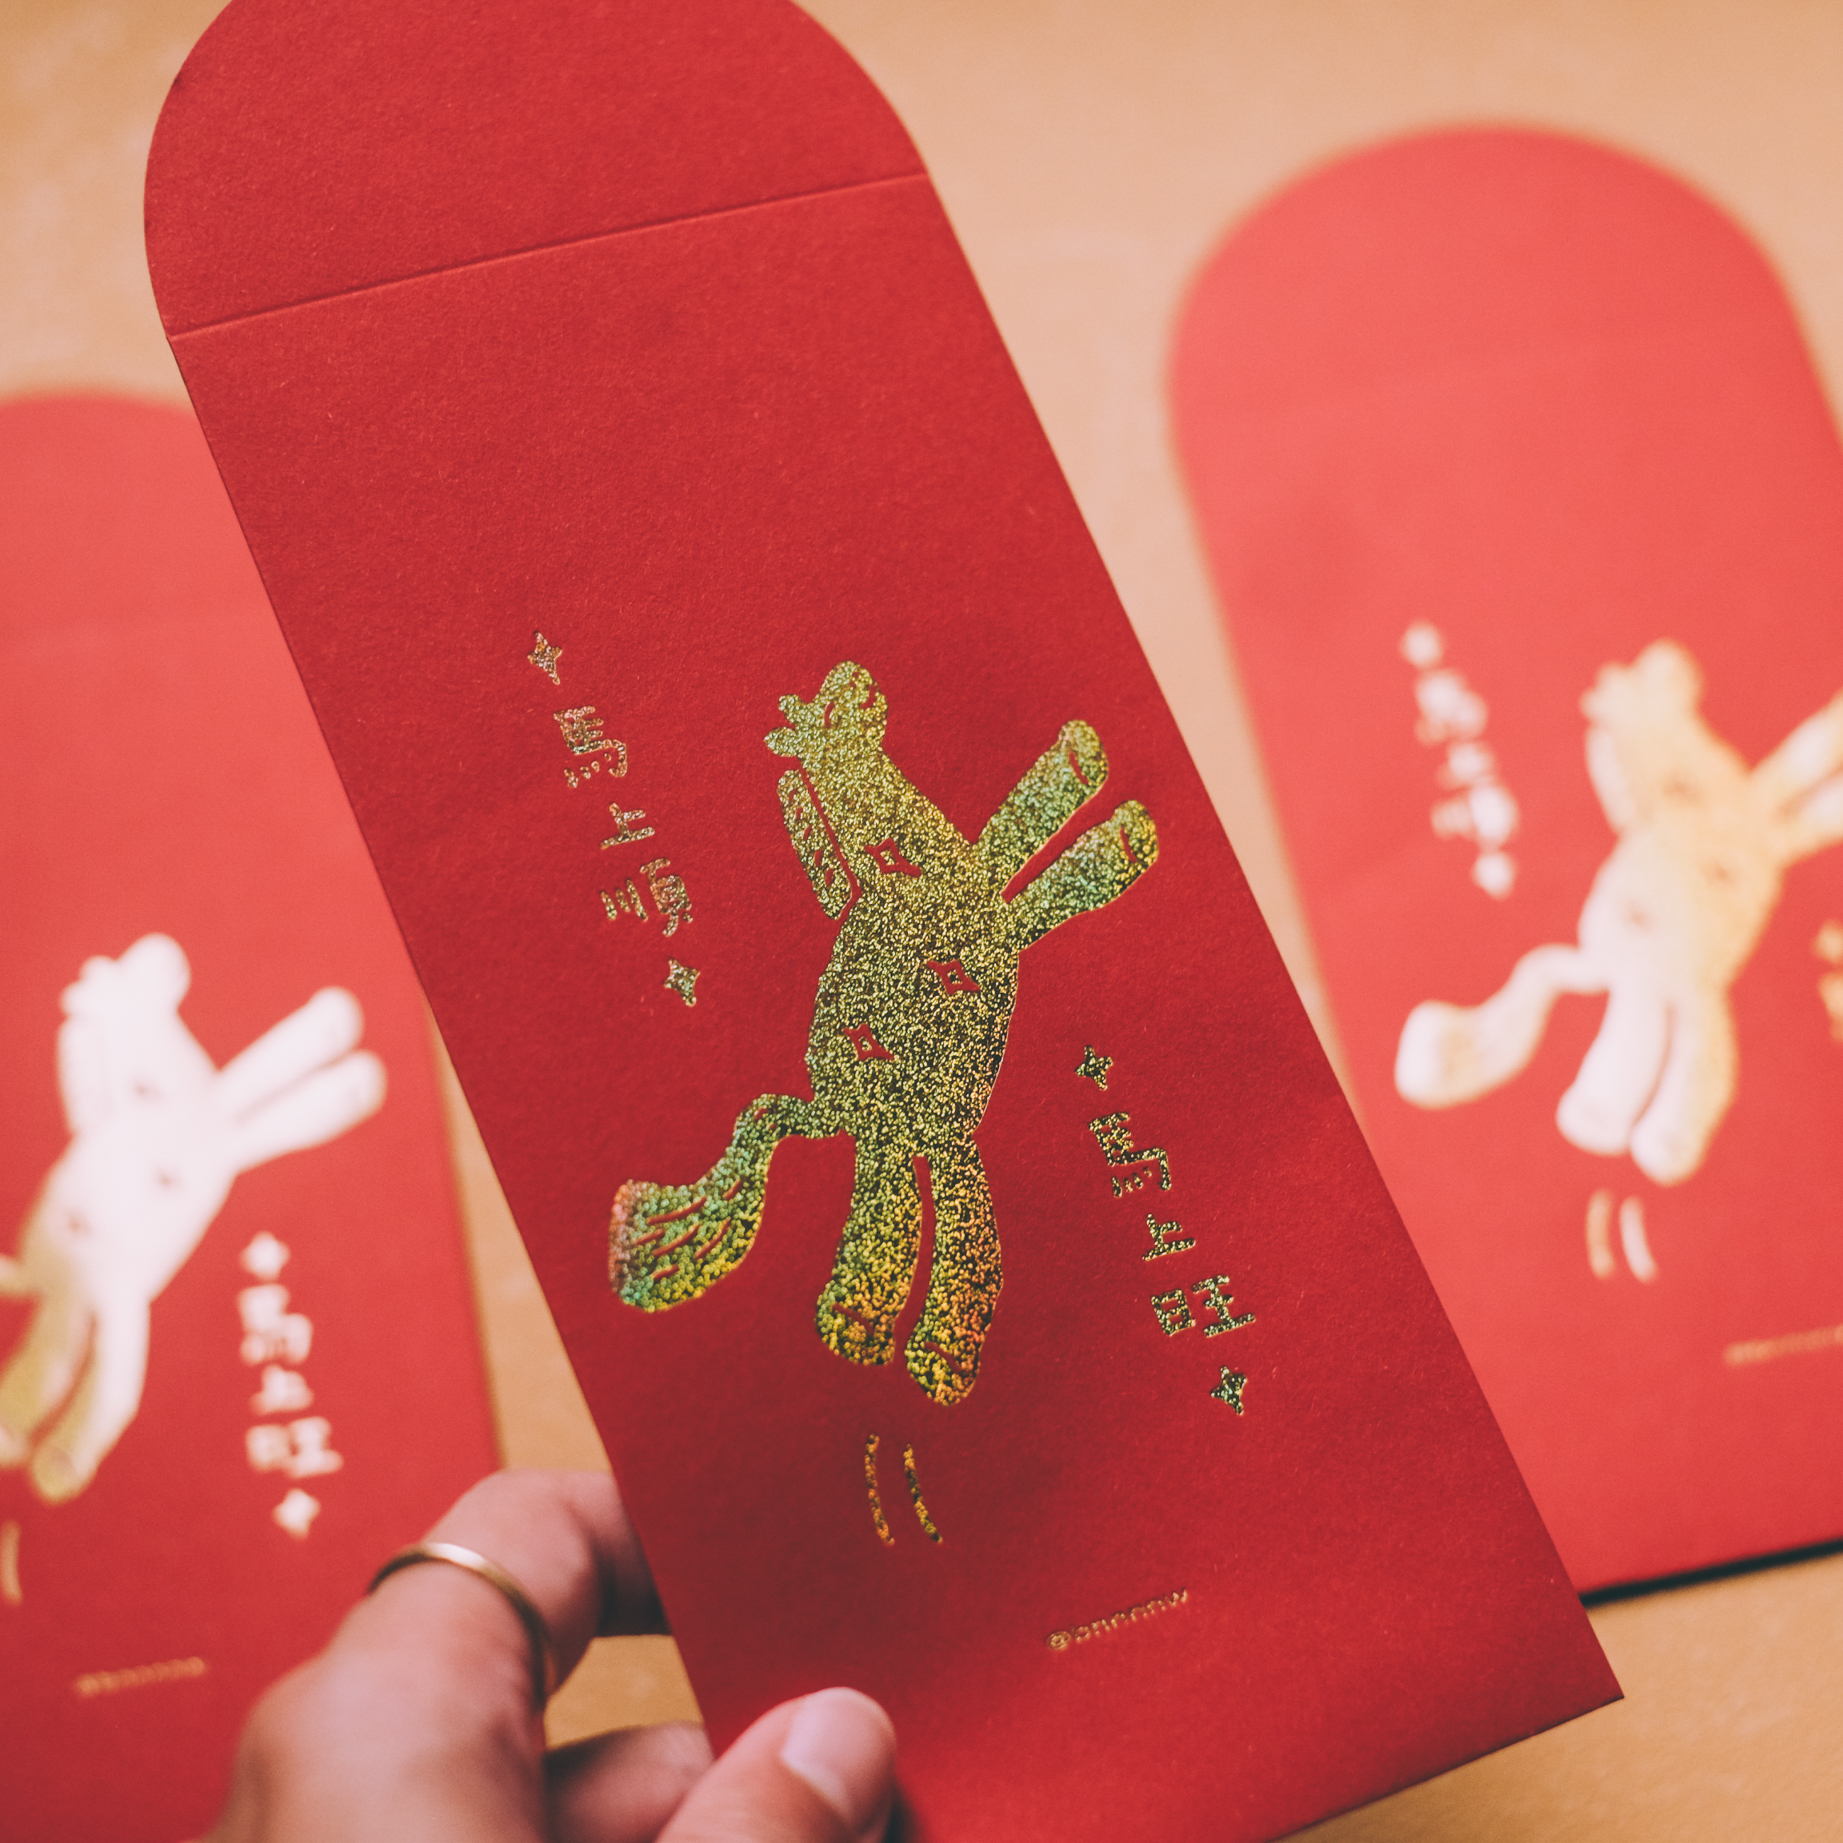 馬上順
馬上旺
@bnnnnw
馬上旺
馬上順